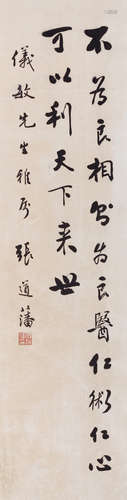 不為良相當為良醫仁術仁心
可以利天下来世
儀敏先生雅屬 張道藩